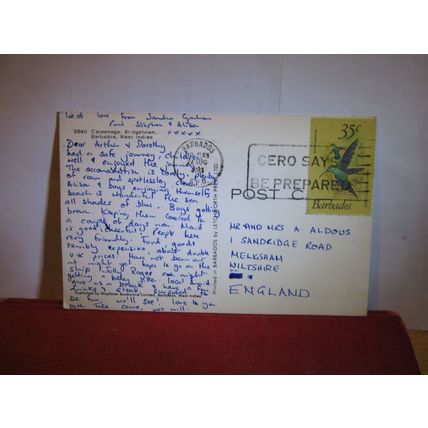 lot of love from Sandra Graham
Paul Stephen & Alisa
xxxxx
8840 Careenage, Bridgetown,
Barbados, West Indies
Dear Arthur & Dorothy
had a safe journey,
well & enjoyed the journey
The accomodation is lovely,
of room and spotlessly clean
Alisa & boys enjoying themselves
beach is wonderful the sea
all shades of blue Boys getting
brown. Keeping them covered for
a couple of days more. Maid
is good. People here
very friendly. Food & goods
terribly expensive about double
U.K prices. Have not been out
at night yet. hope to go on the
ship Jolly Roger one night
getting a baby sitter. local
give us a
drinks & steak
be fun we'll see! love to you
both Take care,
Published by Wayfarer Bookstore Limited, Barbados, West Indies
Printed in BARBADOS by LETCHWORTH PRESS
BARBADOS
AUG
GPO
CERO SAYS
BE PREPARED
35c
Barbados
POST C
MR AND MRS A ALDOUS
1 SANDRIDGE ROAD
MELKSHAM
WILTSHIRE
ENGLAND